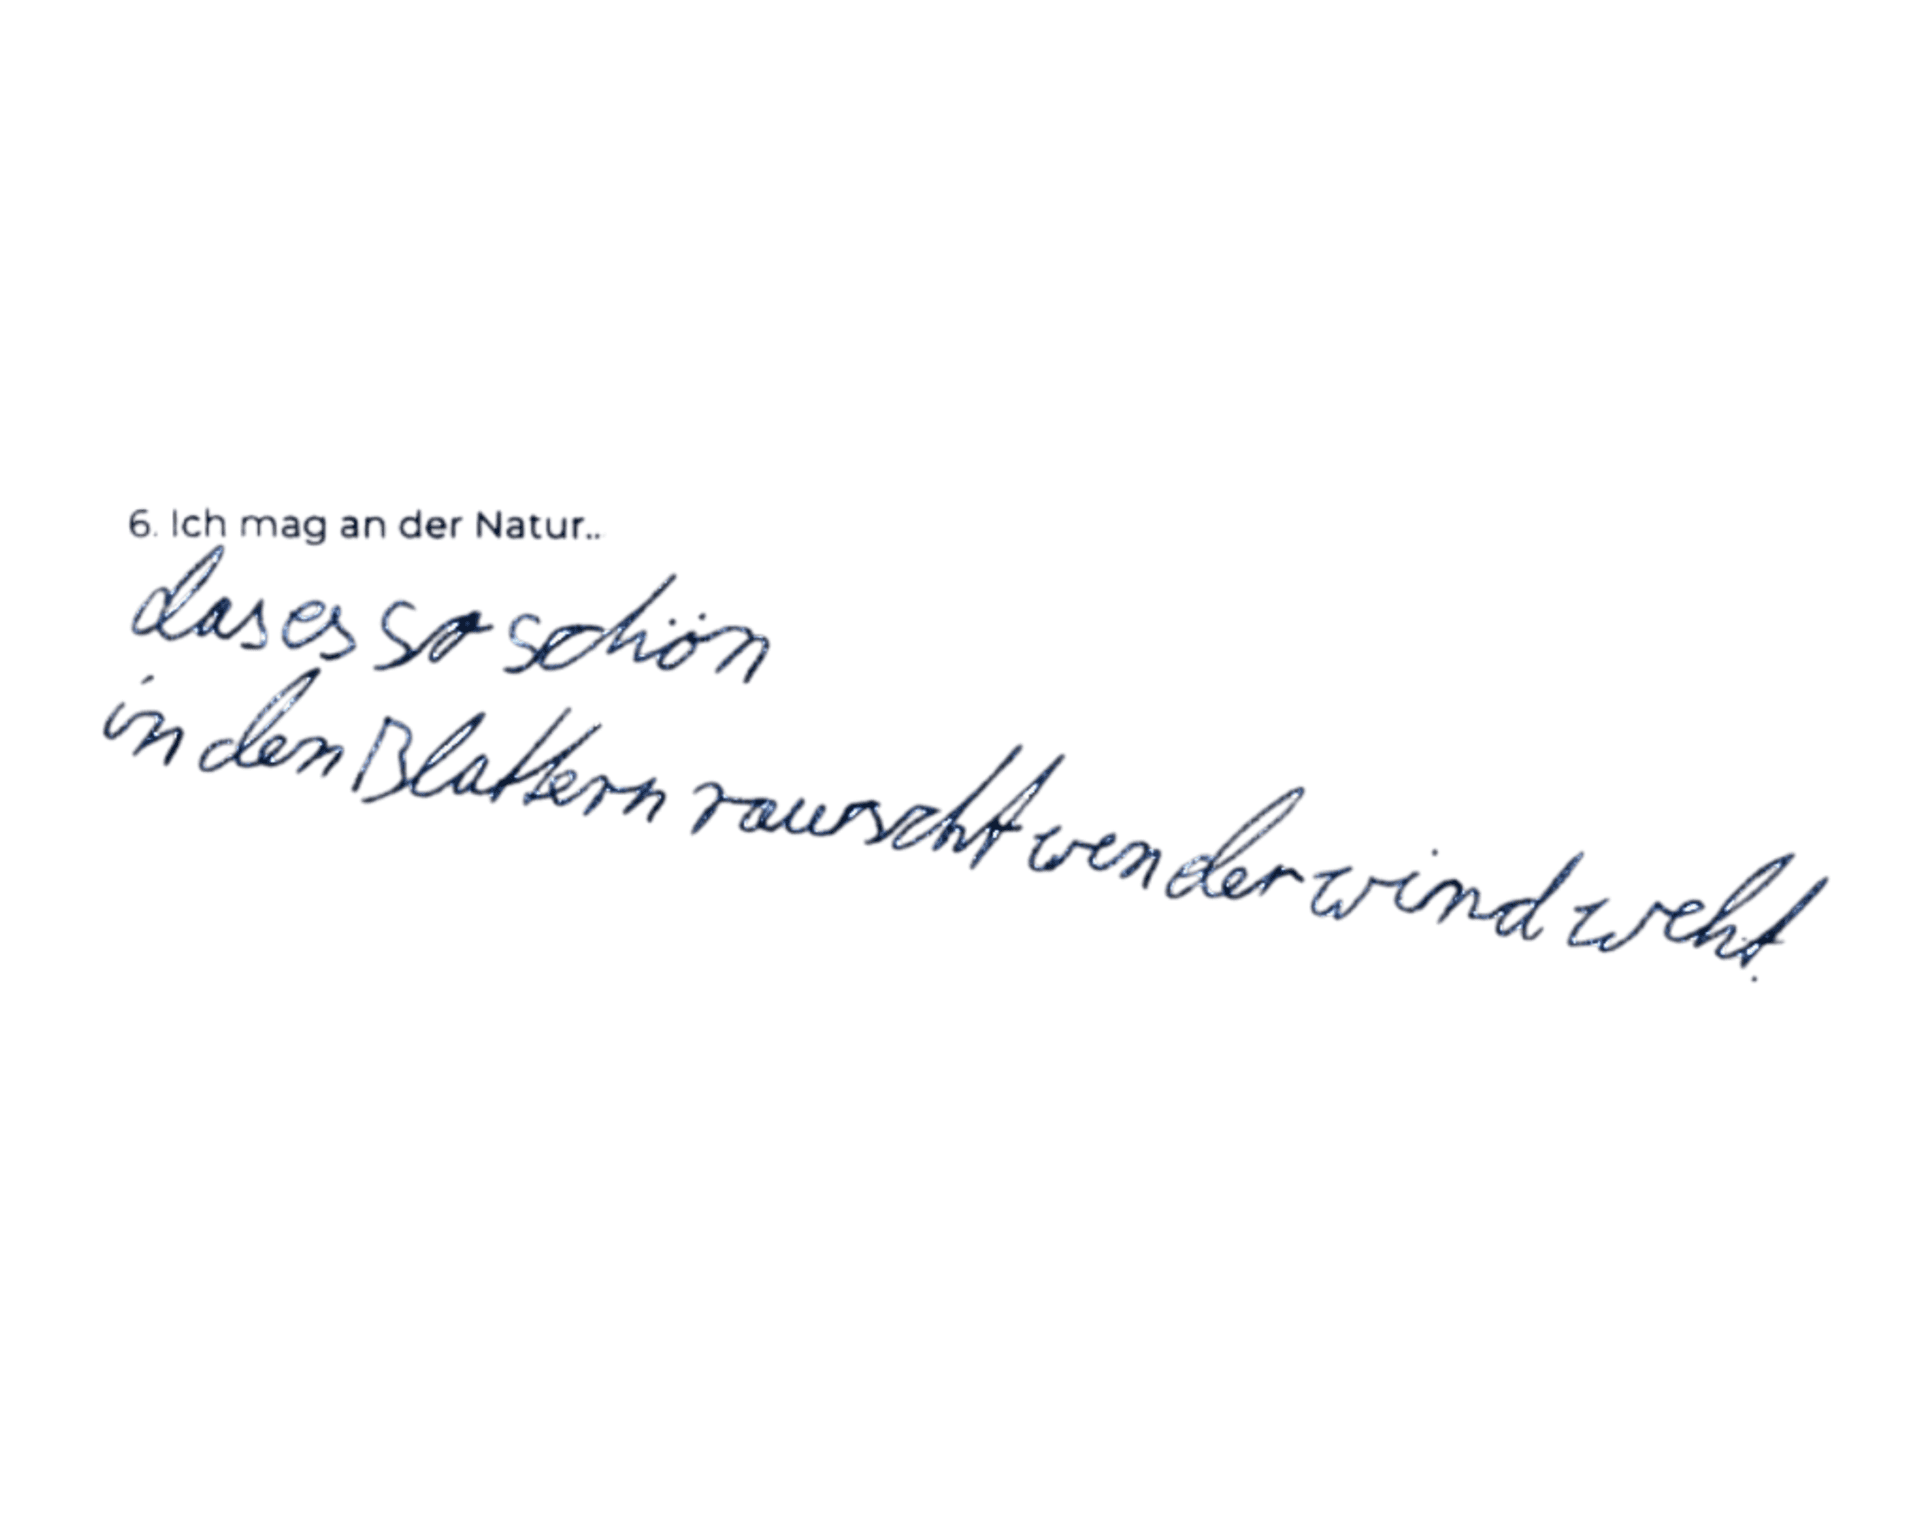 6. Ich mag an der Natur..
das es so schön
in den Blattern rauscht wen der wind weht.